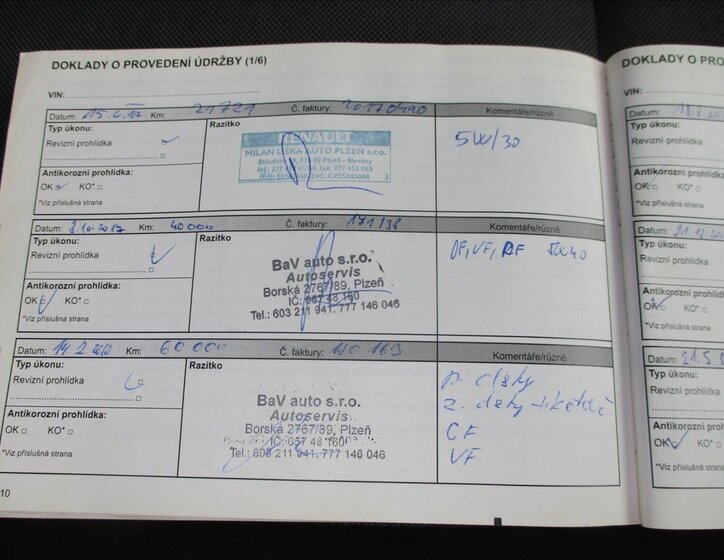 DOKLADY O PROVEDENÍ ÚDRŽBY (1/6)
VIN:
Datum: Km: 21721 Č. faktury: 20170490
Typ úkonu: Razítko Komentáře/různé
Revizní prohlídka
RENAULT
MILAN LIŠKA AUTO PLZEŇ s.r.o.
5W/30
Antikorozní prohlídka:
OK KO*
*Viz příslušná strana
Datum: 3.10.2017 Km: 40000 Č. faktury: 171138
Typ úkonu: Razítko Komentáře/různé
Revizní prohlídka
BaV auto s.r.o.
Autoservis
Borská 2767/89, Plzeň
IČ: 057 48 160
Tel.: 603 211 941, 777 146 046
Antikorozní prohlídka:
OK KO*
*Viz příslušná strana
Datum: Km: 60000 Č. faktury:
Typ úkonu: Razítko Komentáře/různé
Revizní prohlídka
BaV auto s.r.o.
Autoservis
Borská 2767/89, Plzeň
IČ: 057 48 160
Tel.: 603 211 941, 777 146 046
CF
VF
Antikorozní prohlídka:
OK KO*
*Viz příslušná strana
10
DOKLADY O PRO
VIN:
Datum:
Typ úkonu:
Revizní prohlídka
Antikorozní prohlídka
OK KO*
*Viz příslušná strana
Datum:
Typ úkonu:
Revizní prohlídka
Antikorozní prohlídka
OK KO*
*Viz příslušná strana
Datum:
Typ úkonu:
Revizní prohlídka
Antikorozní prohlídka
OK KO*
*Viz příslušná strana